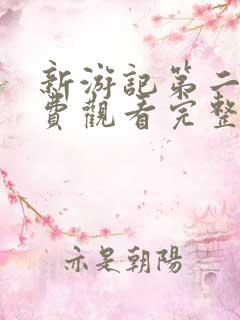 新游記第二
費觀看完整
亦是朝陽